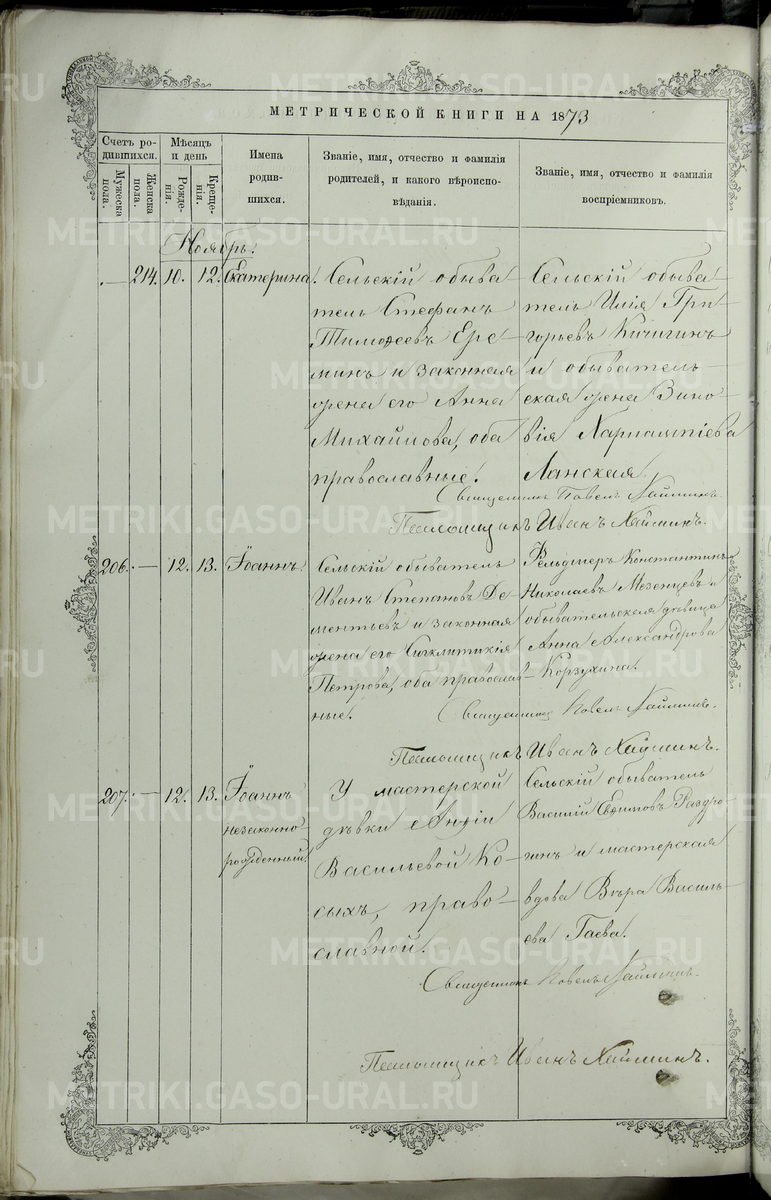 МЕТРИЧЕСКОЙ КНИГИ НА 1873
Счетъ ро-
дившихся.
Мужеска
пола.
Женска
пола.
Мѣсяцъ
и день
Рожде-
нія.
Креще-
нія.
Имена
родив-
шихся.
Званіе, имя, отчество и фамилія
родителей, и какого вѣроиспо-
вѣданія.
Званіе, имя, отчество и фамилія
воспріемниковъ.
Ноябрь.
— 214. 10. 12. Екатерина.
Сельскій обыва
тель Стефанъ
Тимофеевъ Ере-
минъ и законная
жена его Анна
Михайлова, оба
православные.
Сельскій обыва
тель Илія Гри-
горьевъ Кичигинъ
и обыватель-
ская жена Зино-
вія Харлампіева
Ланская.
Священникъ Павелъ Хайминъ.
Псаломщикъ Иванъ Хайминъ.
206. — 12. 13. Іоаннъ.
Сельскій обыватель
Иванъ Степановъ Де-
ментьевъ и законная
жена его Синклитикія
Петрова, оба православ-
ные.
Фельдшеръ Константинъ
Николаевъ Мезенцевъ и
обывательская дѣвица
Анна Александрова
Корзухина.
Священникъ Павелъ Хайминъ.
Псаломщикъ Иванъ Хайминъ.
207. — 12. 13. Іоаннъ
незаконно-
рожденный.
У мастерской
дѣвки Лидіи
Васильевой Ко-
сыхъ, право-
славной.
Сельскій обыватель
Василій Евфимовъ Раздро-
гинъ и мастерская
вдова Вѣра Василь-
ева Гаева.
Священникъ Павелъ Хайминъ.
Псаломщикъ Иванъ Хайминъ.
METRIKI.GASO-URAL.RU